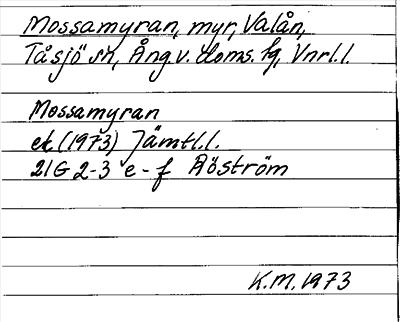 Mossamyran, myr, Valån,
Tåsjö sn, Ång.v. doms. fg, Vnrl. l.
Mossamyran
ek (1973) Jämtl. l.
21G 2-3 e-f Röström
K.M. 1973